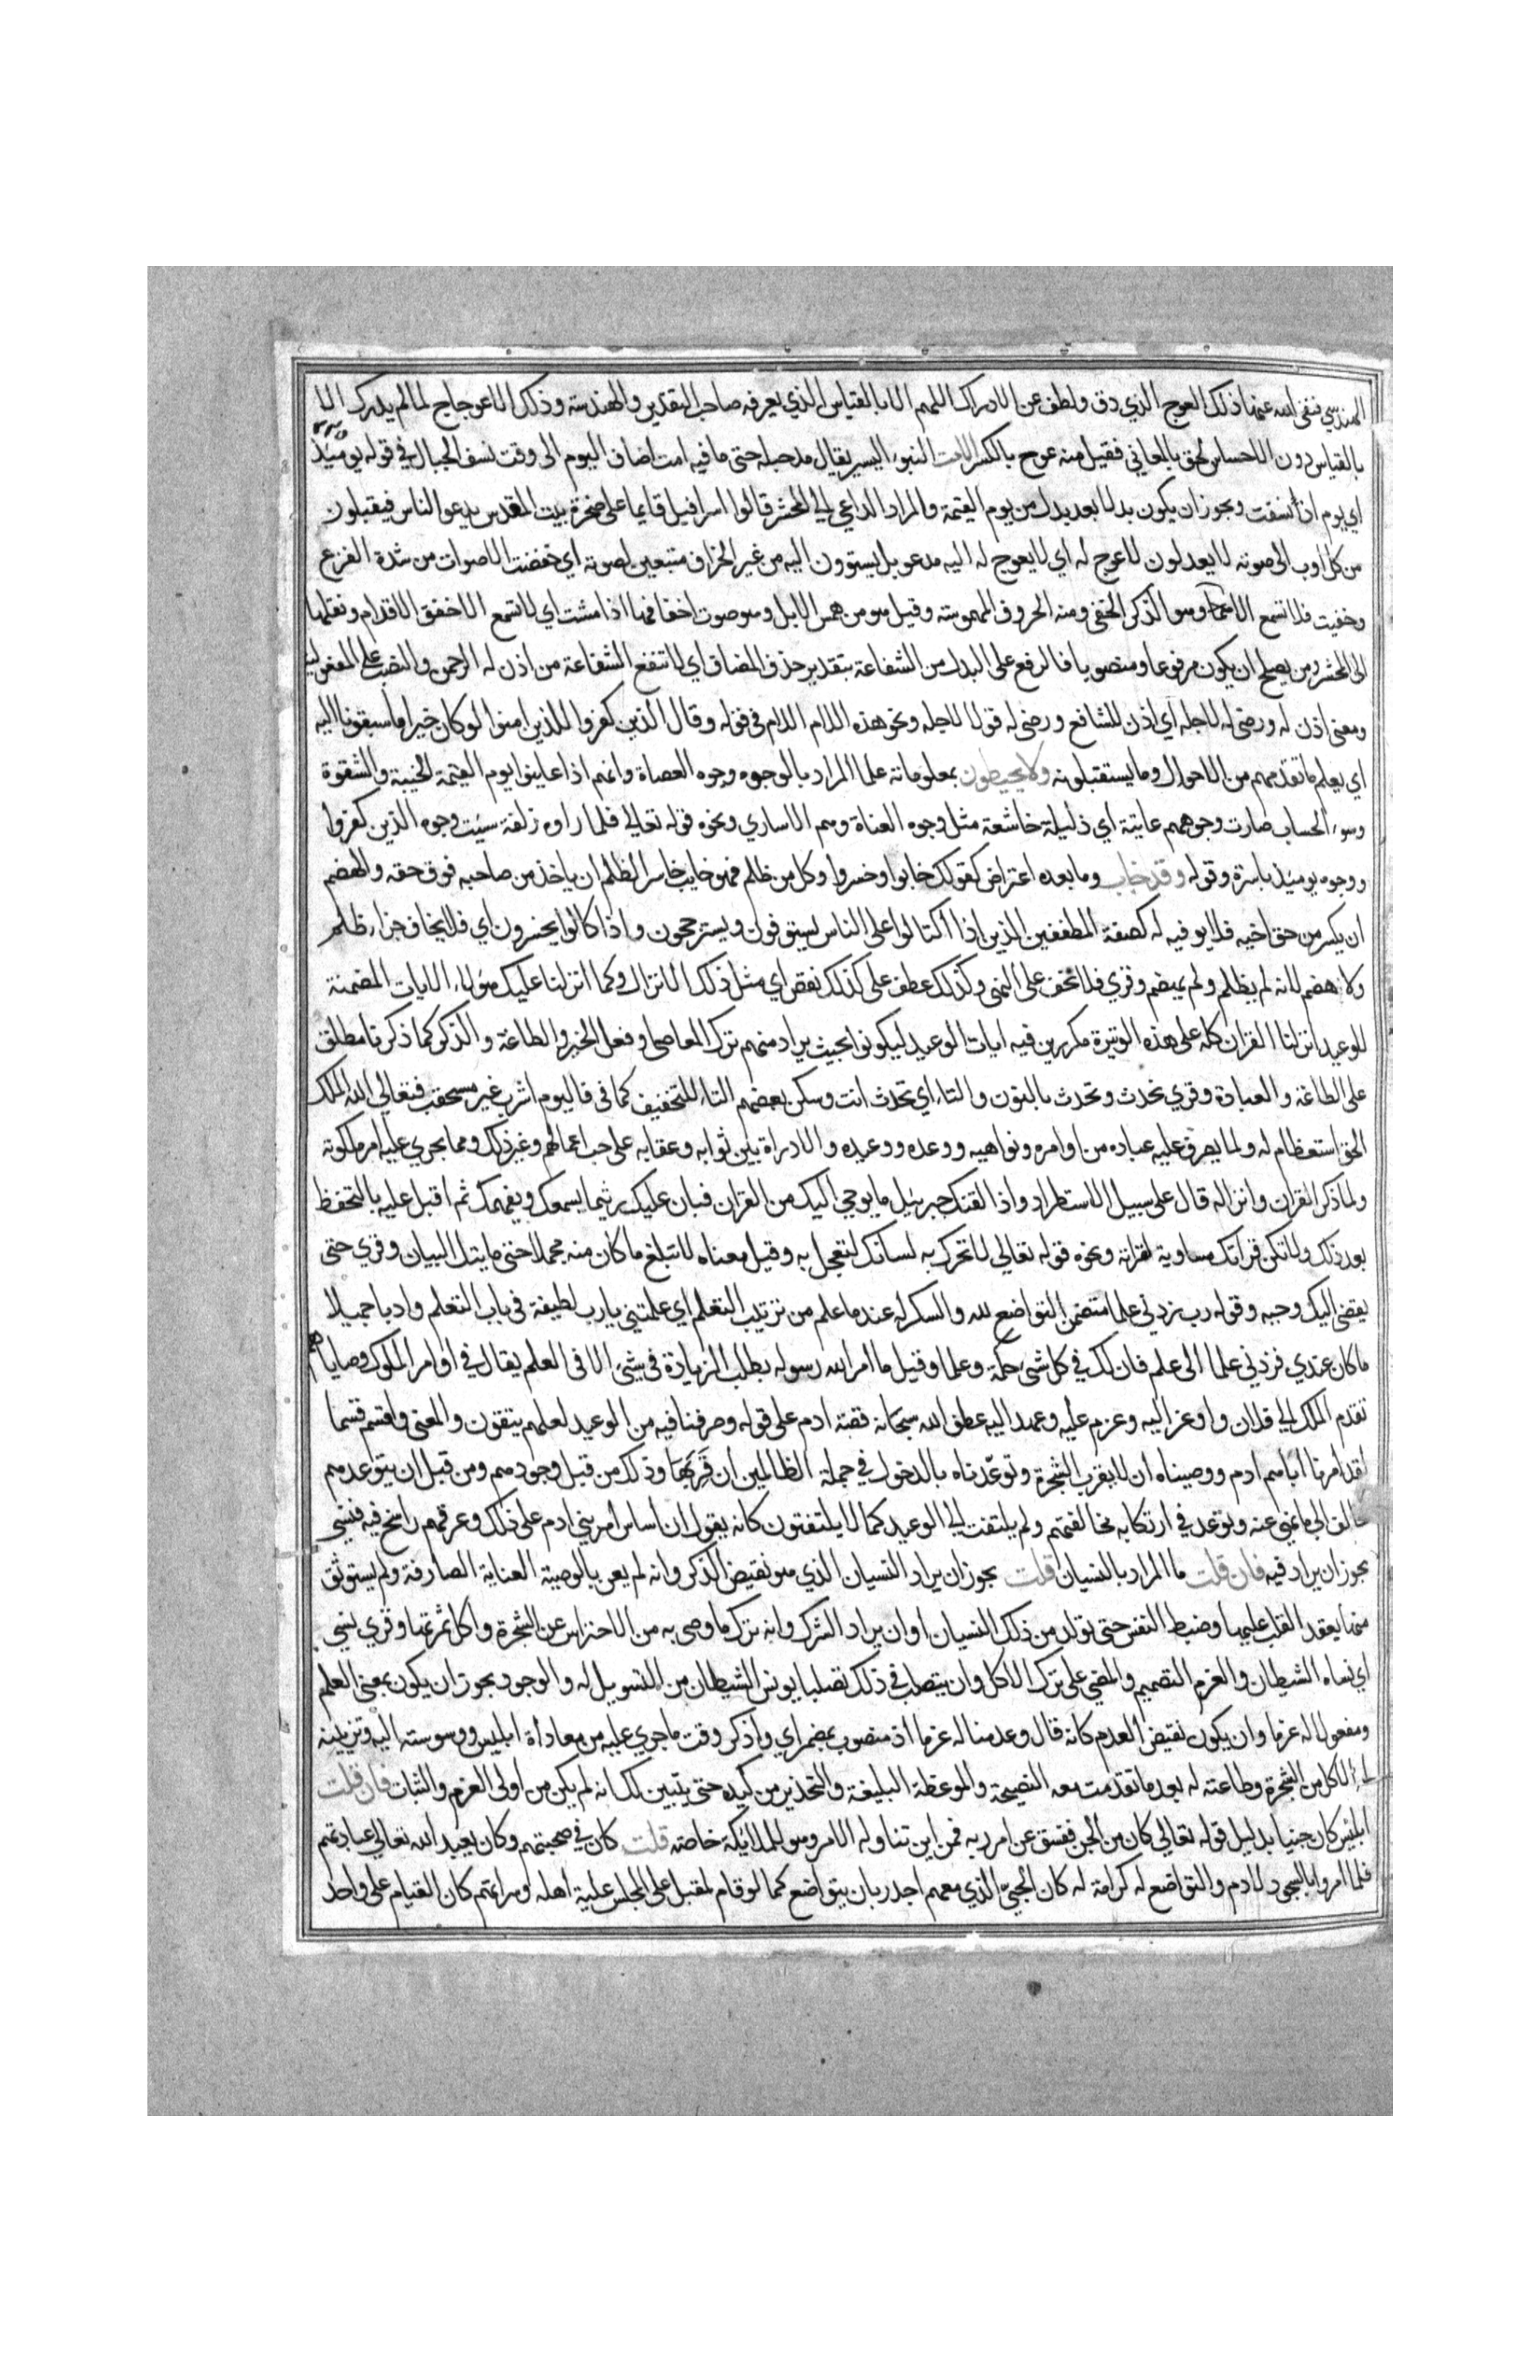 الهندسي فنفى الله عنها ذلك العوج الذي دق ولطف عن الادراك اللهم الا بالقياس الذي يعرفه صاحب التقدير والهندسة وذلك الاعوجاج لما لم يدرك الا
بالقياس دون الاحساس لحق بالمعاني فقيل منه عوج بالكسر الامت النبوء اليسير يقال مد حبله حتى ما فيه امت اضاف اليوم الى وقت نسف الجبال في قوله يومئذ
اي يوم اذ نسفت ويجوز ان يكون بدلا بعد بدل من يوم القيمة والمراد الداعي الي المحشر قالوا اسرافيل قايما على صخرة بيت المقدس يدعو الناس فيقبلون
من كل اوب الى صوته لا يعدلون لا عوج له اي لا يعوج له اليه مدعو بل يستوون اليه من غير انحراف متبعين لصوته اي خفضت الاصوات من شدة الفزع
وخفيت فلا تسمع الا همسا وهو الذكر الخفي ومنه الحروف المهموسة وقيل هو من همس الابل وهو صوت اخفافها اذا مشت اي لا تسمع الا خفق الاقدام ونقلها
الى المحشر ومن يصلح ان يكون مرفوعا ومنصوبا فالرفع على البدل من الشفاعة بتقدير حذف المضاف اي لا تنفع الشفاعة من اذن له الرحمن والنصب على المفعولية
ومعنى اذن له ورضى له لاجله اي اذن للشافع ورضى له قولا لاجله ونحو هذه اللام اللام في قوله وقال الذين كفروا للذين امنوا لو كان خيرا ما سبقونا اليه
اي يعلم ما تقدمهم من الاحوال وما يستقبلونه ولا يحيطون بمعلوماته علما المراد بالوجوه وجوه العصاة وانهم اذا عاينوا يوم القيمة الخيبة والشقوة
وسوء الحساب صارت وجوههم عانية اي ذليلة خاشعة مثل وجوه العناة وهم الاساري ونحوه قوله تعالي فلما راوه زلفة سيئت وجوه الذين كفروا
ووجوه يومئذ باسرة وقوله وقد خاب وما بعده اعتراض كقولك خابوا وخسروا وكل من ظلم فهو خايب خاسر الظلم ان ياخذ من صاحبه فوق حقه والهضم
ان يكسر من حق اخيه فلا يوفيه له كصفة المطففين الذين اذا اكتالوا على الناس يستوفون ويسترجحون واذا كالوا يخسرون اي فلا يخاف جزاء ظلم
ولا هضم لانه لم يظلم ولم يهضم وقري فلا تخف على النهي وكذلك عطف على كذلك نقص اي مثل ذلك الانزال وكما انزلنا عليك هؤلاء الايات المضمنة
للوعيد انزلنا القران كله على هذه الوتيرة مكررين فيه ايات الوعيد ليكونوا بحيث يراد منهم ترك المعاصي او فعل الخير والطاعة والذكر كما ذكرنا مطلق
على الطاعة والعبادة وقري نحدث وتحدث بالنون والتاء اي تحدث انت وسكن بعضهم الثاء للتخفيف كما في فاليوم اشرب غير مستحقب فتعالى الله الملك
الحق استعظام له ولما يصرف عليه عباده من اوامره ونواهيه ووعده ووعيده والادارة بين ثوابه وعقابه على حسب اعمالهم وغير ذلك ومما يجري عليه امر ملكوته
ولما ذكر القران وانزاله قال على سبيل الاستطراد واذا لقنك جبرئيل ما يوحي اليك من القران فتان عليك ريثما يسمعك ويفهمك ثم اقبل عليه بالتحفظ
بعد ذلك ولا تكن قراتك مساوية لقراته ونحوه قوله تعالي لا تحرك به لسانك لتعجل به وقيل معناه لا تبلغ ما كان منه مجملا حتى ياتيك البيان وقري حتى
يقضى اليك وحيه وقوله رب زدني علما متضمن التواضع لله والشكر له عندما علم من ترتيب التعلم اي علمتني يا رب لطيفة في باب التعلم وادبا جميلا
ما كان عندي فزدني علما الى علم فان لك في كل شيء حكمة وعلما وقيل ما امر الله رسوله بطلب الزيادة في شيء الا في العلم يقال في اوامر الملوك ووصاياهم
تقدم الملك الي فلان واوعز اليه وعزم عليه وعهد اليه عطف الله سبحانه قصة ادم على قوله وصرفنا فيه من الوعيد لعلهم يتقون والمعنى واقسم قسما
لقد امرنا اباهم ادم ووصيناه ان لا يقرب الشجرة وتوعدناه بالدخول في جملة الظالمين ان قربها وذلك من قبل وجودهم ومن قبل ان يتوعدهم
فخالف الى ما نهي عنه وتوعد في ارتكابه مخالفتهم ولم يلتفت الي الوعيد كما لا يلتفتون كانه يقول ان اساس امر بني ادم على ذلك وعرقهم راسخ فيه فنسي
يجوز ان يراد فيه فان قلت ما المراد بالنسيان قلت يجوز ان يراد النسيان الذي هو نقيض الذكر وانه لم يعن بالوصية العناية الصادقة ولم يستوثق
منها بعقد القلب عليها وضبط النفس حتى تولد من ذلك النسيان او ان يراد الترك وانه ترك ما وصى به من الاحتراس عن الشجرة واكل ثمرتها وقري نسي
اي نساه الشيطان والعزم التصميم والمضي على ترك الاكل وان يتصلب في ذلك تصلبا يوئس الشيطان من التسويل له والوجود يجوز ان يكون بمعنى العلم
ومفعولاه له عزما وان يكون نقيض العدم كانه قال وعدمنا له عزما اذ منصوب بمضمر اي واذكر وقت ما جري عليه من معاداة ابليس ووسوسته اليه وتزيينه
له الاكل من الشجرة وطاعته له بعد ما تقدمت معه النصيحة والموعظة البليغة والتحذير من كيده حتى يتبين لك انه لم يكن من اولى العزم والثبات فان قلت
ابليس كان جنيا بدليل قوله تعالي كان من الجن ففسق عن امر ربه فمن اين تناوله الامر وهو للملائكة خاصة قلت كان في صحبتهم وكان يعبد الله تعالي عبادتهم
فلما امروا بالسجود لادم والتواضع له كرامة له كان الجني الذي معهم اجدر بان يتواضع كما لو قام لمقبل على المجلس علية اهله وسراتهم كان القيام على واحد